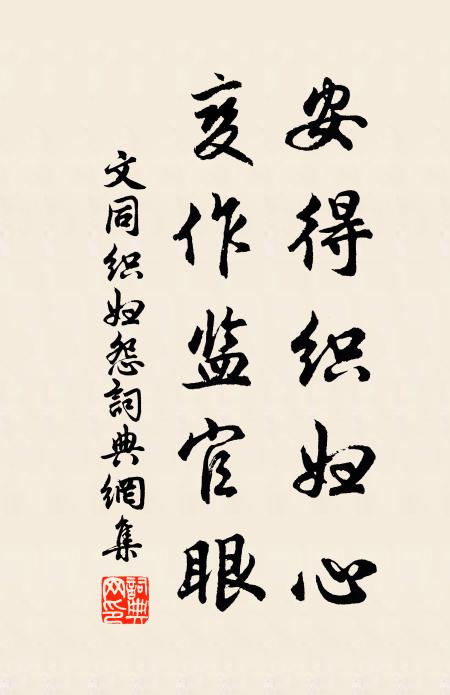 安得织妇心
变作监官眼
文同织妇怨詞典網集
詞典网印